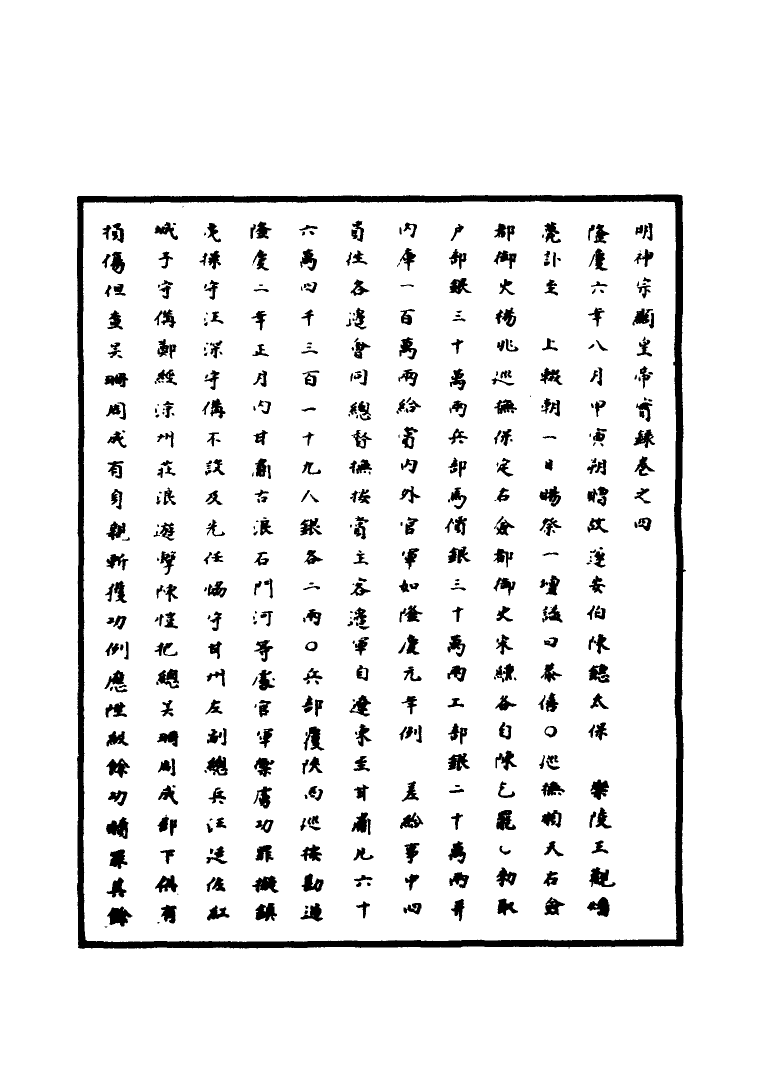 明神宗顯皇帝實錄卷之四
隆慶六年八月甲寅朔贈故遂安伯陳鏸太保　樂陵王觀㷆
薨訃至　上輟朝一日賜祭一壇諡曰恭僖〇巡撫順天右僉
都御史楊兆巡撫保定右僉都御史宋纁各自陳乞罷乀勑取
戶部銀三十萬兩兵部馬價銀三十萬兩工部銀二十萬兩并
內庫一百萬兩給賞內外官軍如隆慶元年例　差給事中四
員徃各邊會同總督撫按賞主客邊軍自遼東至甘肅凡六十
六萬四千三百一十九人銀各二兩〇兵部覆陜西巡按勘過
隆慶二年正月內甘肅古浪石門河等處官軍禦虜功罪擬鎮
堯操守汪深守備不設及先任協守甘州左副總兵汪廷佐紅
城子守備鄭經涼州莊浪遊擊陳愷把總吳珊周成部下俱有
損傷但查吳珊周成有自親斬獲功例應陞級餘功贖罪其餘